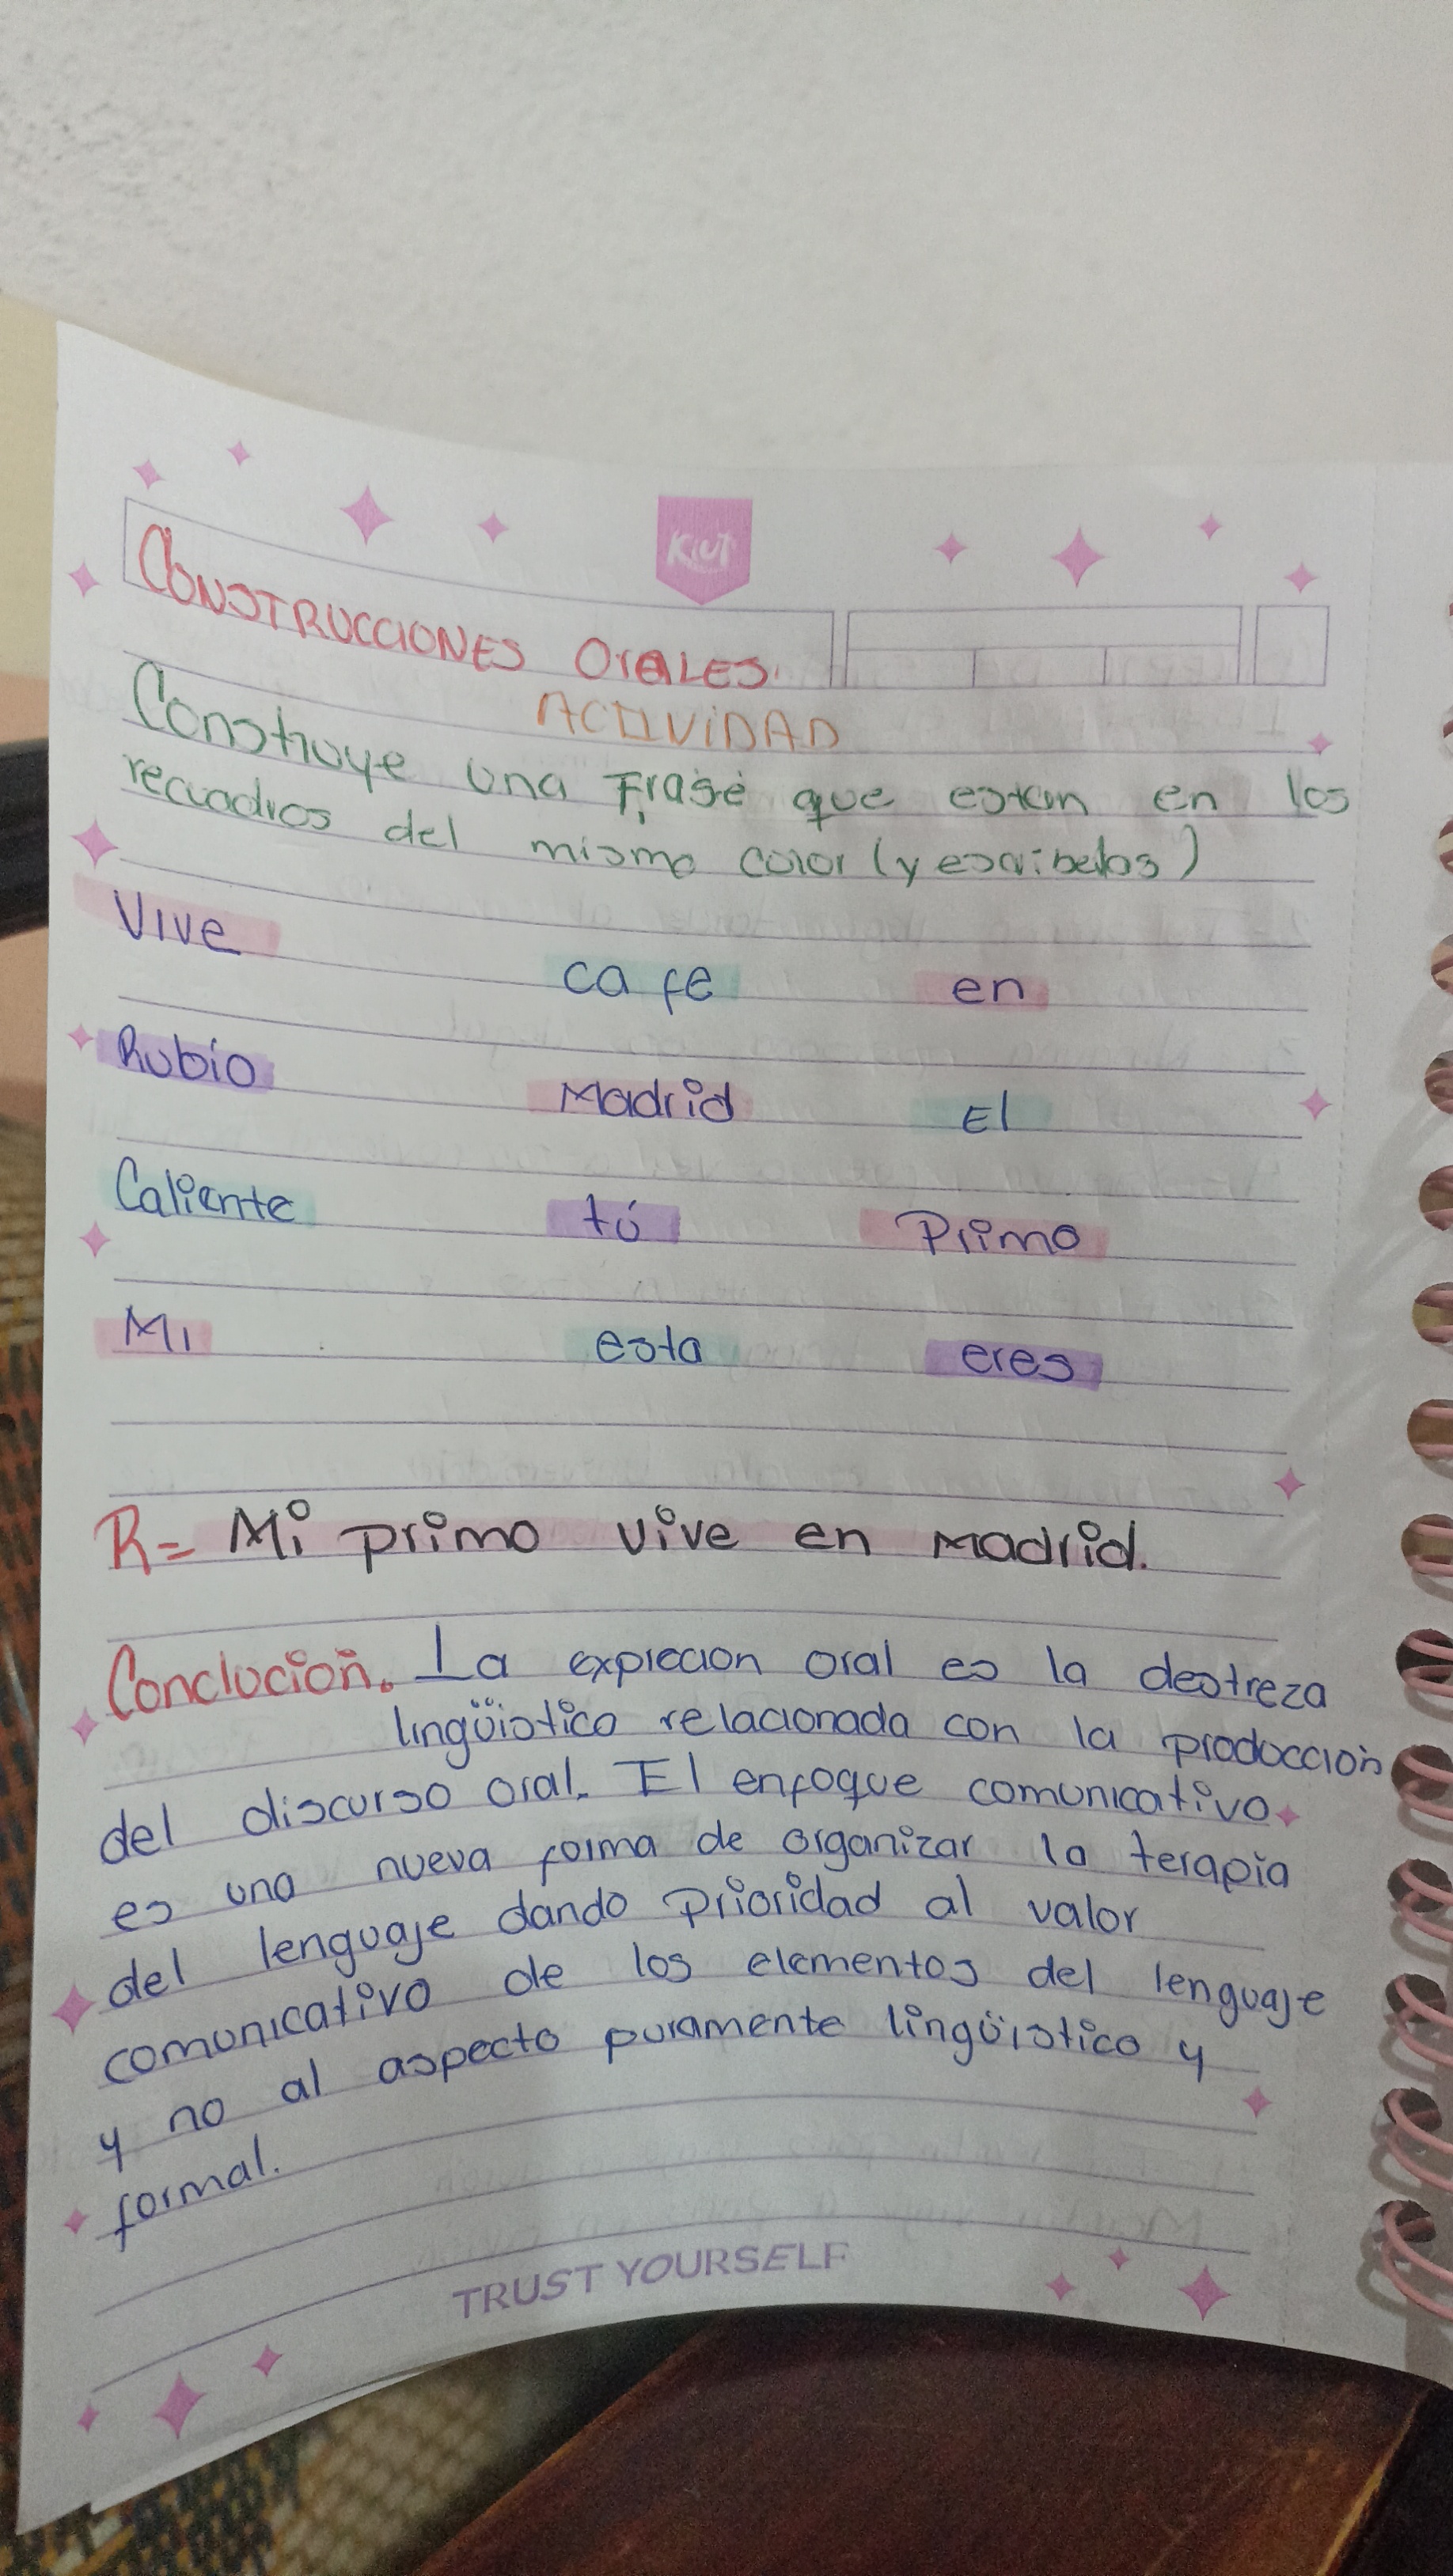 Kiut
CONSTRUCCIONES OrALES.
ACTIVIDAD
Construye una Frase que estan en los
recuadros del mismo color (y escribelos)
Vive cafe en
Rubio Madrid El
Caliente tú Primo
Mi esta eres
R= Mi primo vive en Madrid.
Conclución. La expreción oral es la destreza
lingüístico relacionada con la producción
del discurso oral. El enfoque comunicativo
es una nueva forma de organizar la terapia
del lenguaje dando Prioridad al valor
comunicativo de los elementos del lenguaje
y no al aspecto puramente lingüístico y
formal.
TRUST YOURSELF